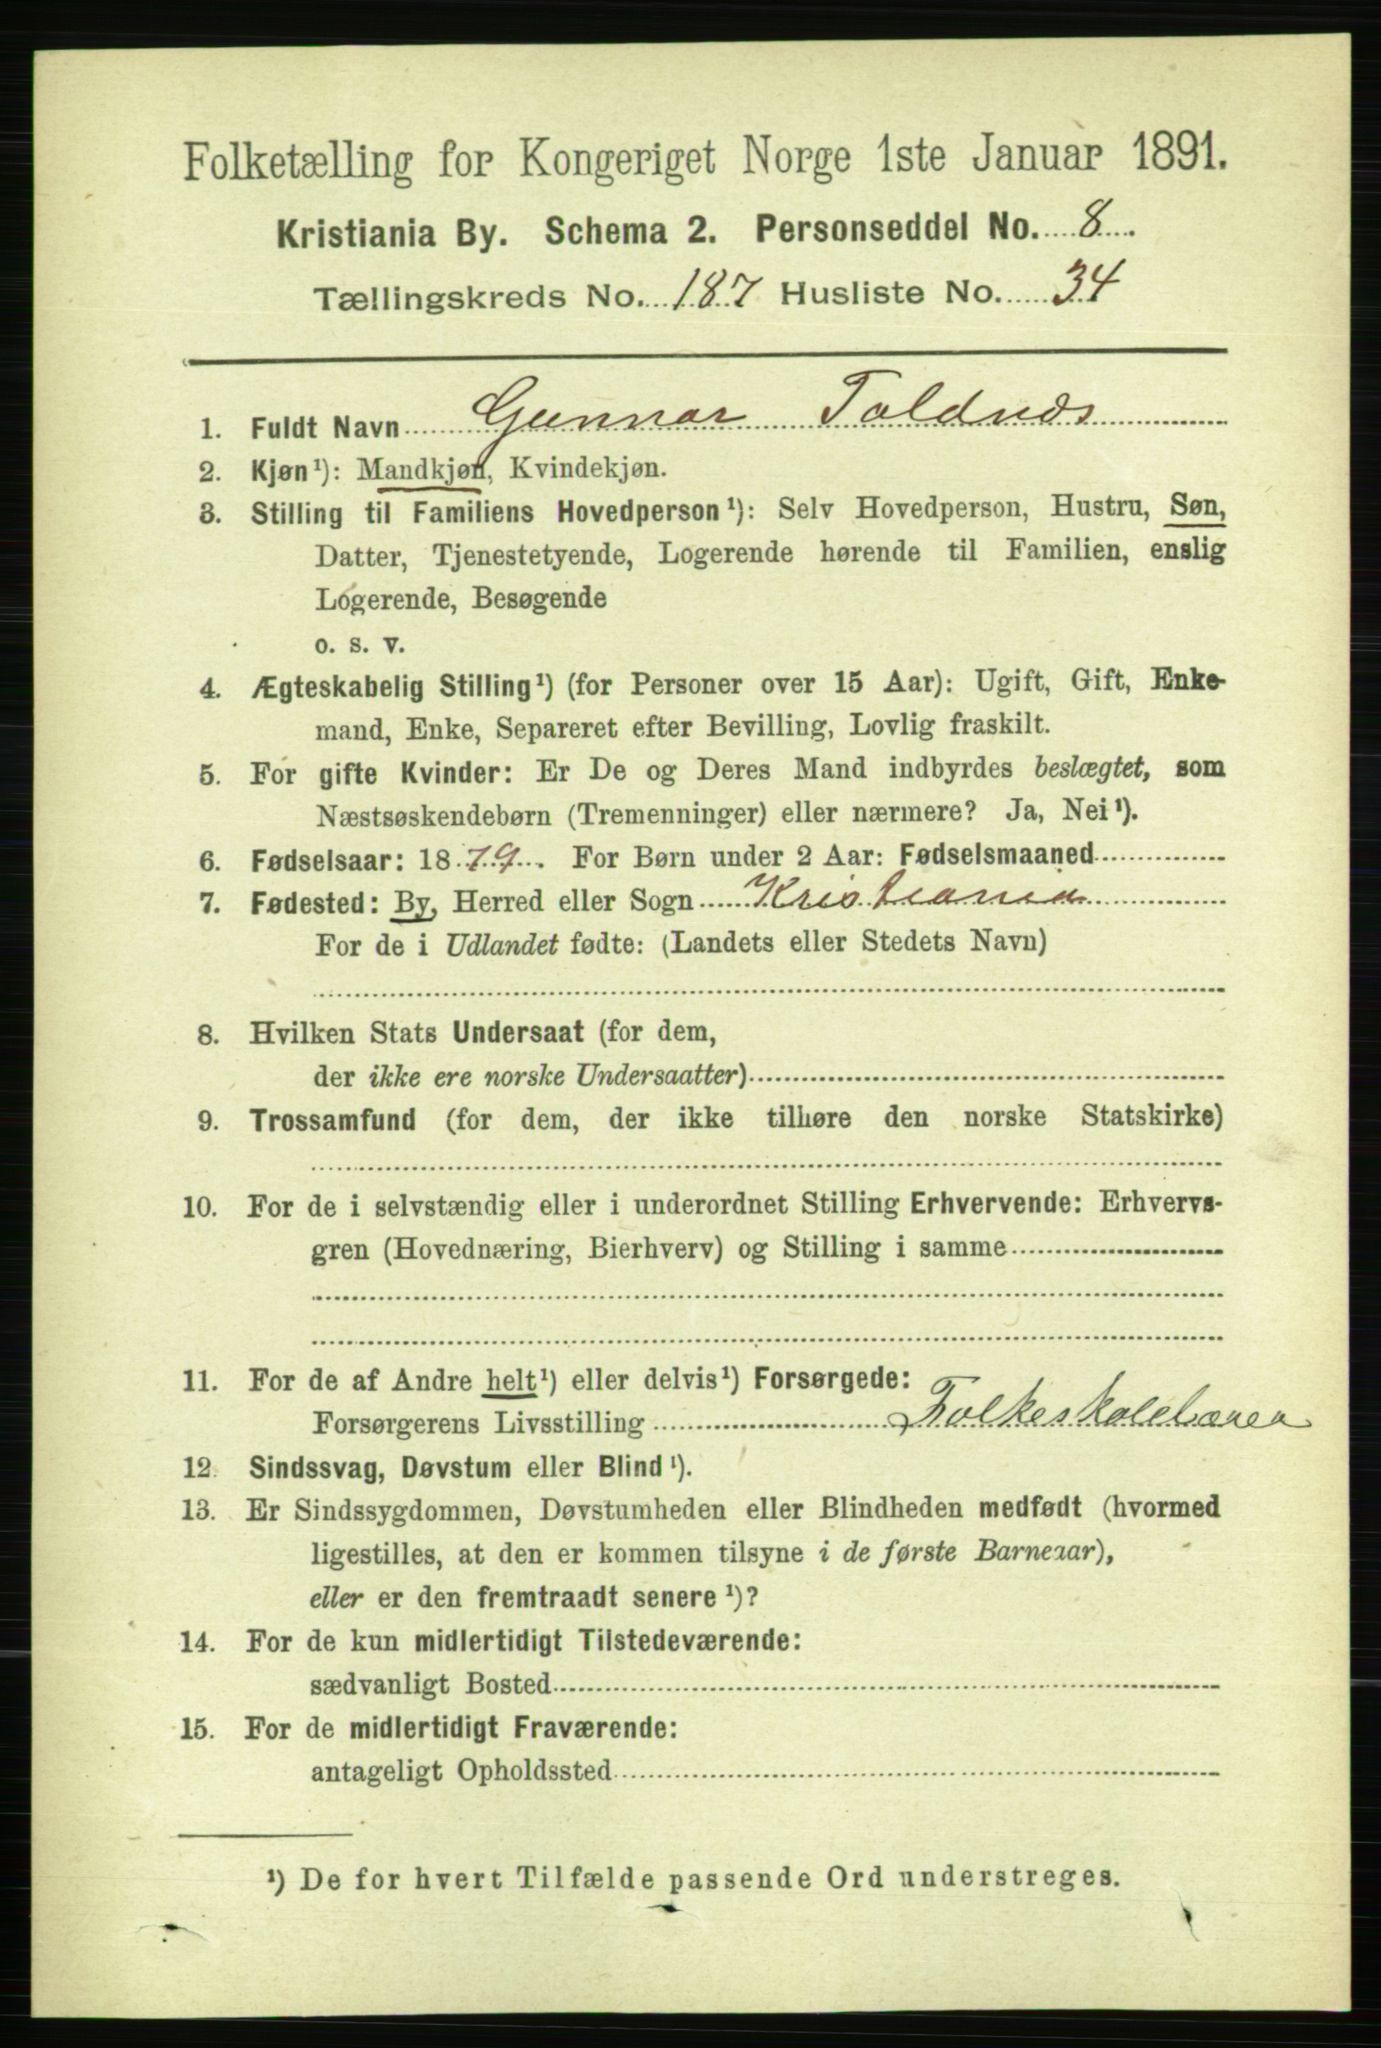 Folketælling for Kongeriget Norge 1ste Januar 1891.
Kristiania By. Schema 2. Personseddel No. 8.
Tællingskreds No. 187 Husliste No. 34
1. Fuldt Navn Gunnar Toldnæs
2. Kjøn¹): Mandkjøn, Kvindekjøn.
3. Stilling til Familiens Hovedperson¹): Selv Hovedperson, Hustru, Søn,
Datter, Tjenestetyende, Logerende hørende til Familien, enslig
Logerende, Besøgende
o. s. v.
4. Ægteskabelig Stilling¹) (for Personer over 15 Aar): Ugift, Gift, Enke-
mand, Enke, Separeret efter Bevilling, Lovlig fraskilt.
5. For gifte Kvinder: Er De og Deres Mand indbyrdes beslægtet, som
Næstsøskendebørn (Tremenninger) eller nærmere? Ja, Nei¹).
6. Fødselsaar: 1879. For Børn under 2 Aar: Fødselsmaaned
7. Fødested: By, Herred eller Sogn Kristiania
For de i Udlandet fødte: (Landets eller Stedets Navn)
8. Hvilken Stats Undersaat (for dem,
der ikke ere norske Undersaatter)
9. Trossamfund (for dem, der ikke tilhøre den norske Statskirke)
10. For de i selvstændig eller i underordnet Stilling Erhvervende: Erhvervs-
gren (Hovednæring, Bierhverv) og Stilling i samme
11. For de af Andre helt¹) eller delvis¹) Forsørgede:
Forsørgerens Livsstilling Folkeskolelærer
12. Sindssvag, Døvstum eller Blind¹).
13. Er Sindssygdommen, Døvstumheden eller Blindheden medfødt (hvormed
ligestilles, at den er kommen tilsyne i de første Barneaar),
eller er den fremtraadt senere¹)?
14. For de kun midlertidigt Tilstedeværende:
sædvanligt Bosted
15. For de midlertidigt Fraværende:
antageligt Opholdssted
¹) De for hvert Tilfælde passende Ord understreges.